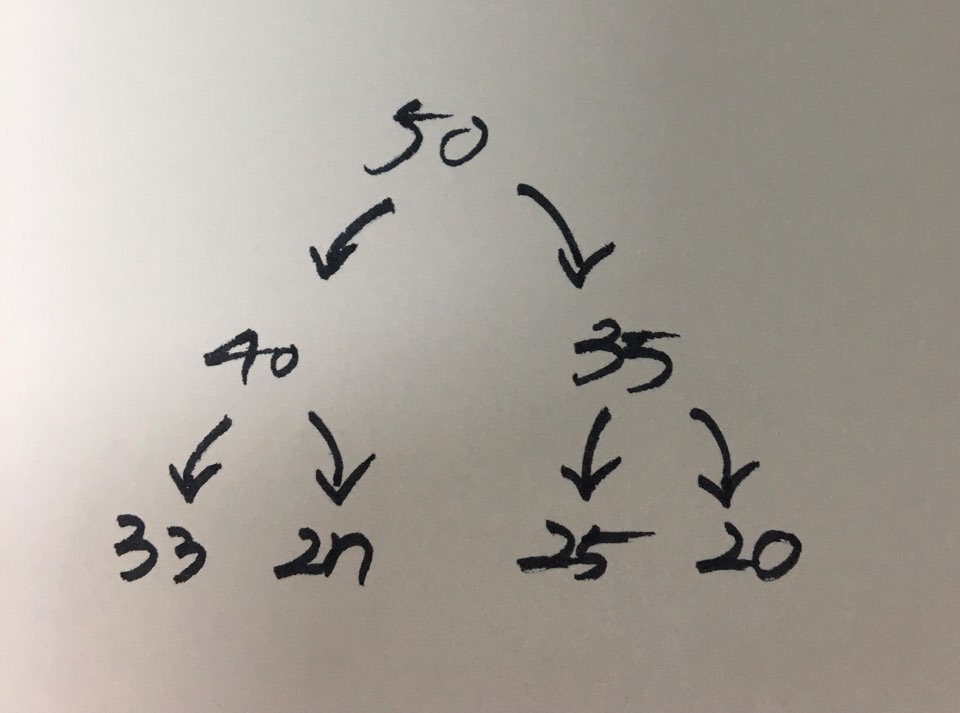 50
40 35
33 27 25 20